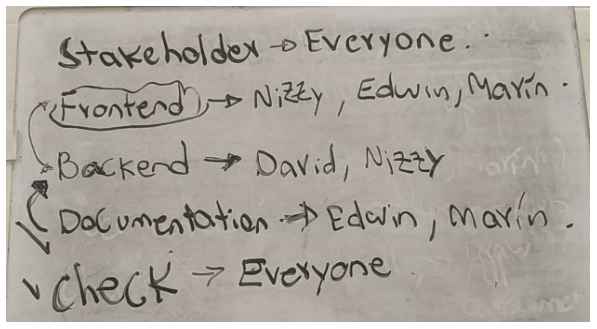 Stakeholder → Everyone.
Frontend → Nizzy, Edwin, Marín.
Backend → David, Nizzy
Documentation → Edwin, Marín.
Check → Everyone